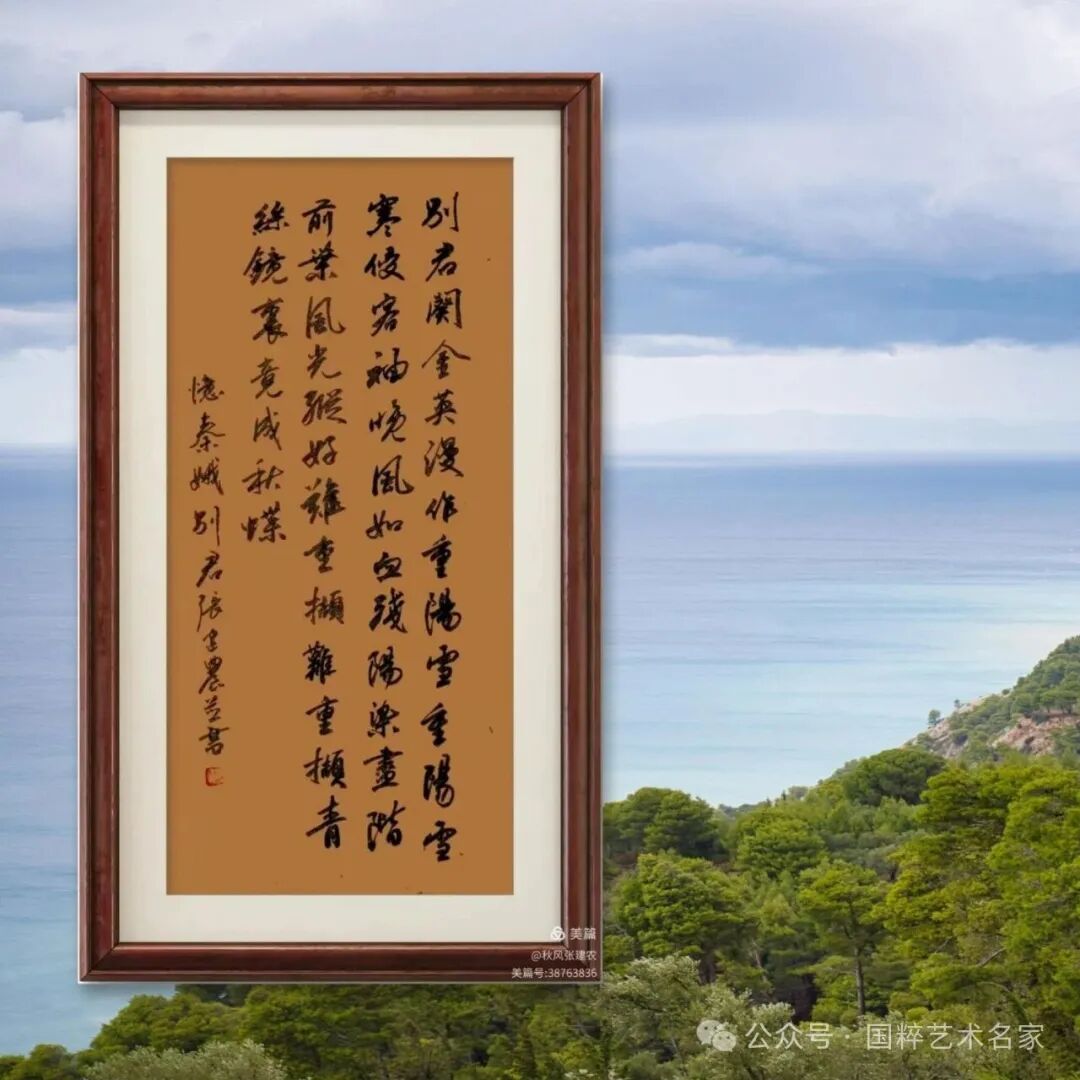 別君闋金英漫作重陽雪重陽雪
寒侵客袖晚風如血殘陽染盡階
前葉風光縱好難重擷難重擷青
絲鏡裏竟成秋蝶
憶秦娥別君張建農並書
美篇
@秋风张建农
美篇号:38763836
公众号·国粹艺术名家